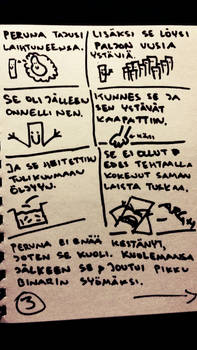 PERUNA TAJUSI
LAIKTUNEENSA.
LISÄKSI SE LÖYSI
PALJON UUSIA
YSTÄVIÄ.
SE OLI JÄLLEEN
ONNELLINEN.
KUNNES SE JA
SEN YSTÄVÄT
KAAPATTIIN.
KÄSI
JA SE HEITETTIIN
TULIKUUMAAN
ÖLJYYN.
SE EI OLLUT
EDES TEHTAALLA
KOKENUT SAMAN
LAISTA TUSKAA.
PERUNA EI ENÄÄ KESTÄNYT,
JOTEN SE KUOLI. KUOLEMANSA
JÄLKEEN SE JOUTUI PIKKU
BINARIN SYÖMÄKSI.
3